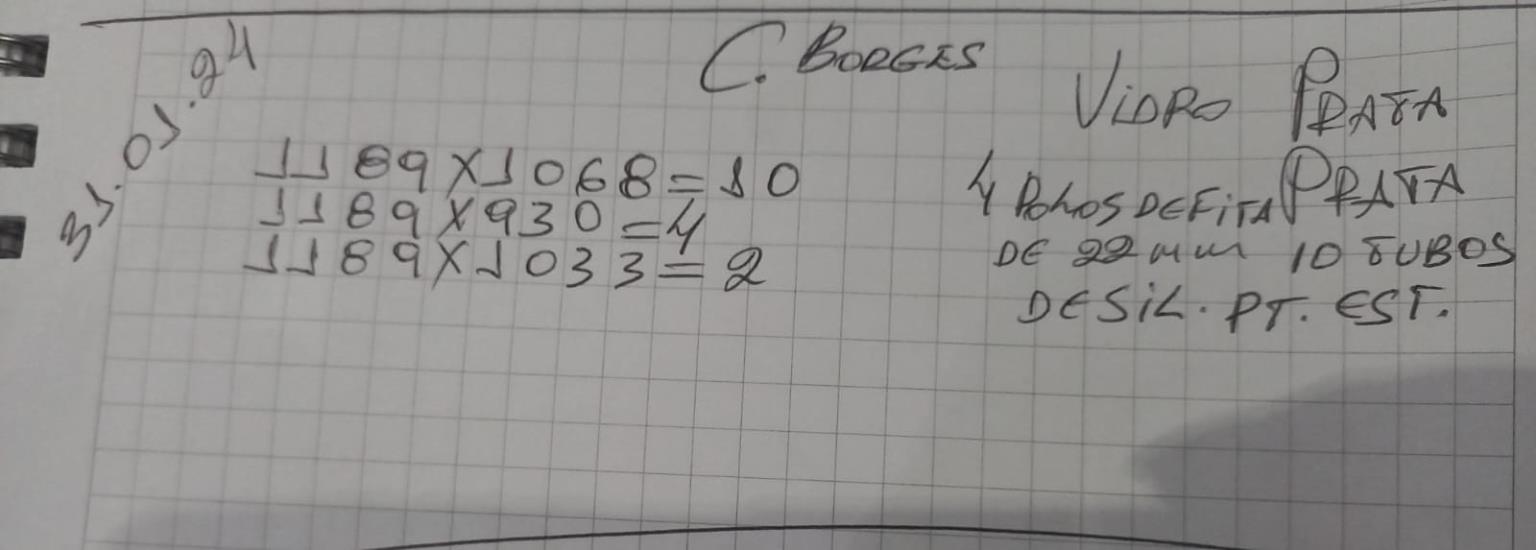 31.01.24
C. BORGES
VIDRO PRATA
1189X1068=10
1189X930=4
1189X1033=2
4 ROLOS DE FITA PRATA
DE 22 mm 10 TUBOS
DE SIL. PT. EST.